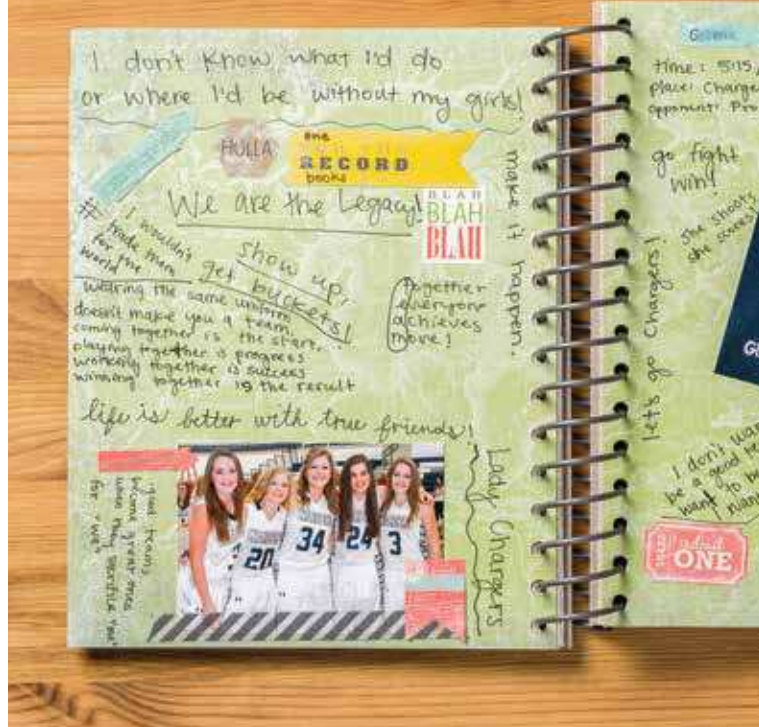 I don't know what I'd do
or where I'd be without my girls!
HULLA
one
RECORD
books
We are the Legacy!
BLAH
BLAH
BLAH
make it happen.
#
I wouldn't
trade them
for the
world
show up,
get buckets!
together
everyone
achieves
more!
wearing the same uniform
doesn't make you a team.
coming together is the start...
playing together is progress
working together is success
winning together is the result
life is better with true friends!
good teams
become great ones
when they sacrifice "me"
for "we"
20
34
24
3
Lady Chargers
time: 5:15
place: Charge
opponent: Pro
go fight
win!
she shoots
she scores!
let's go Chargers!
I don't wan
be a good
want to be
admit
ONE